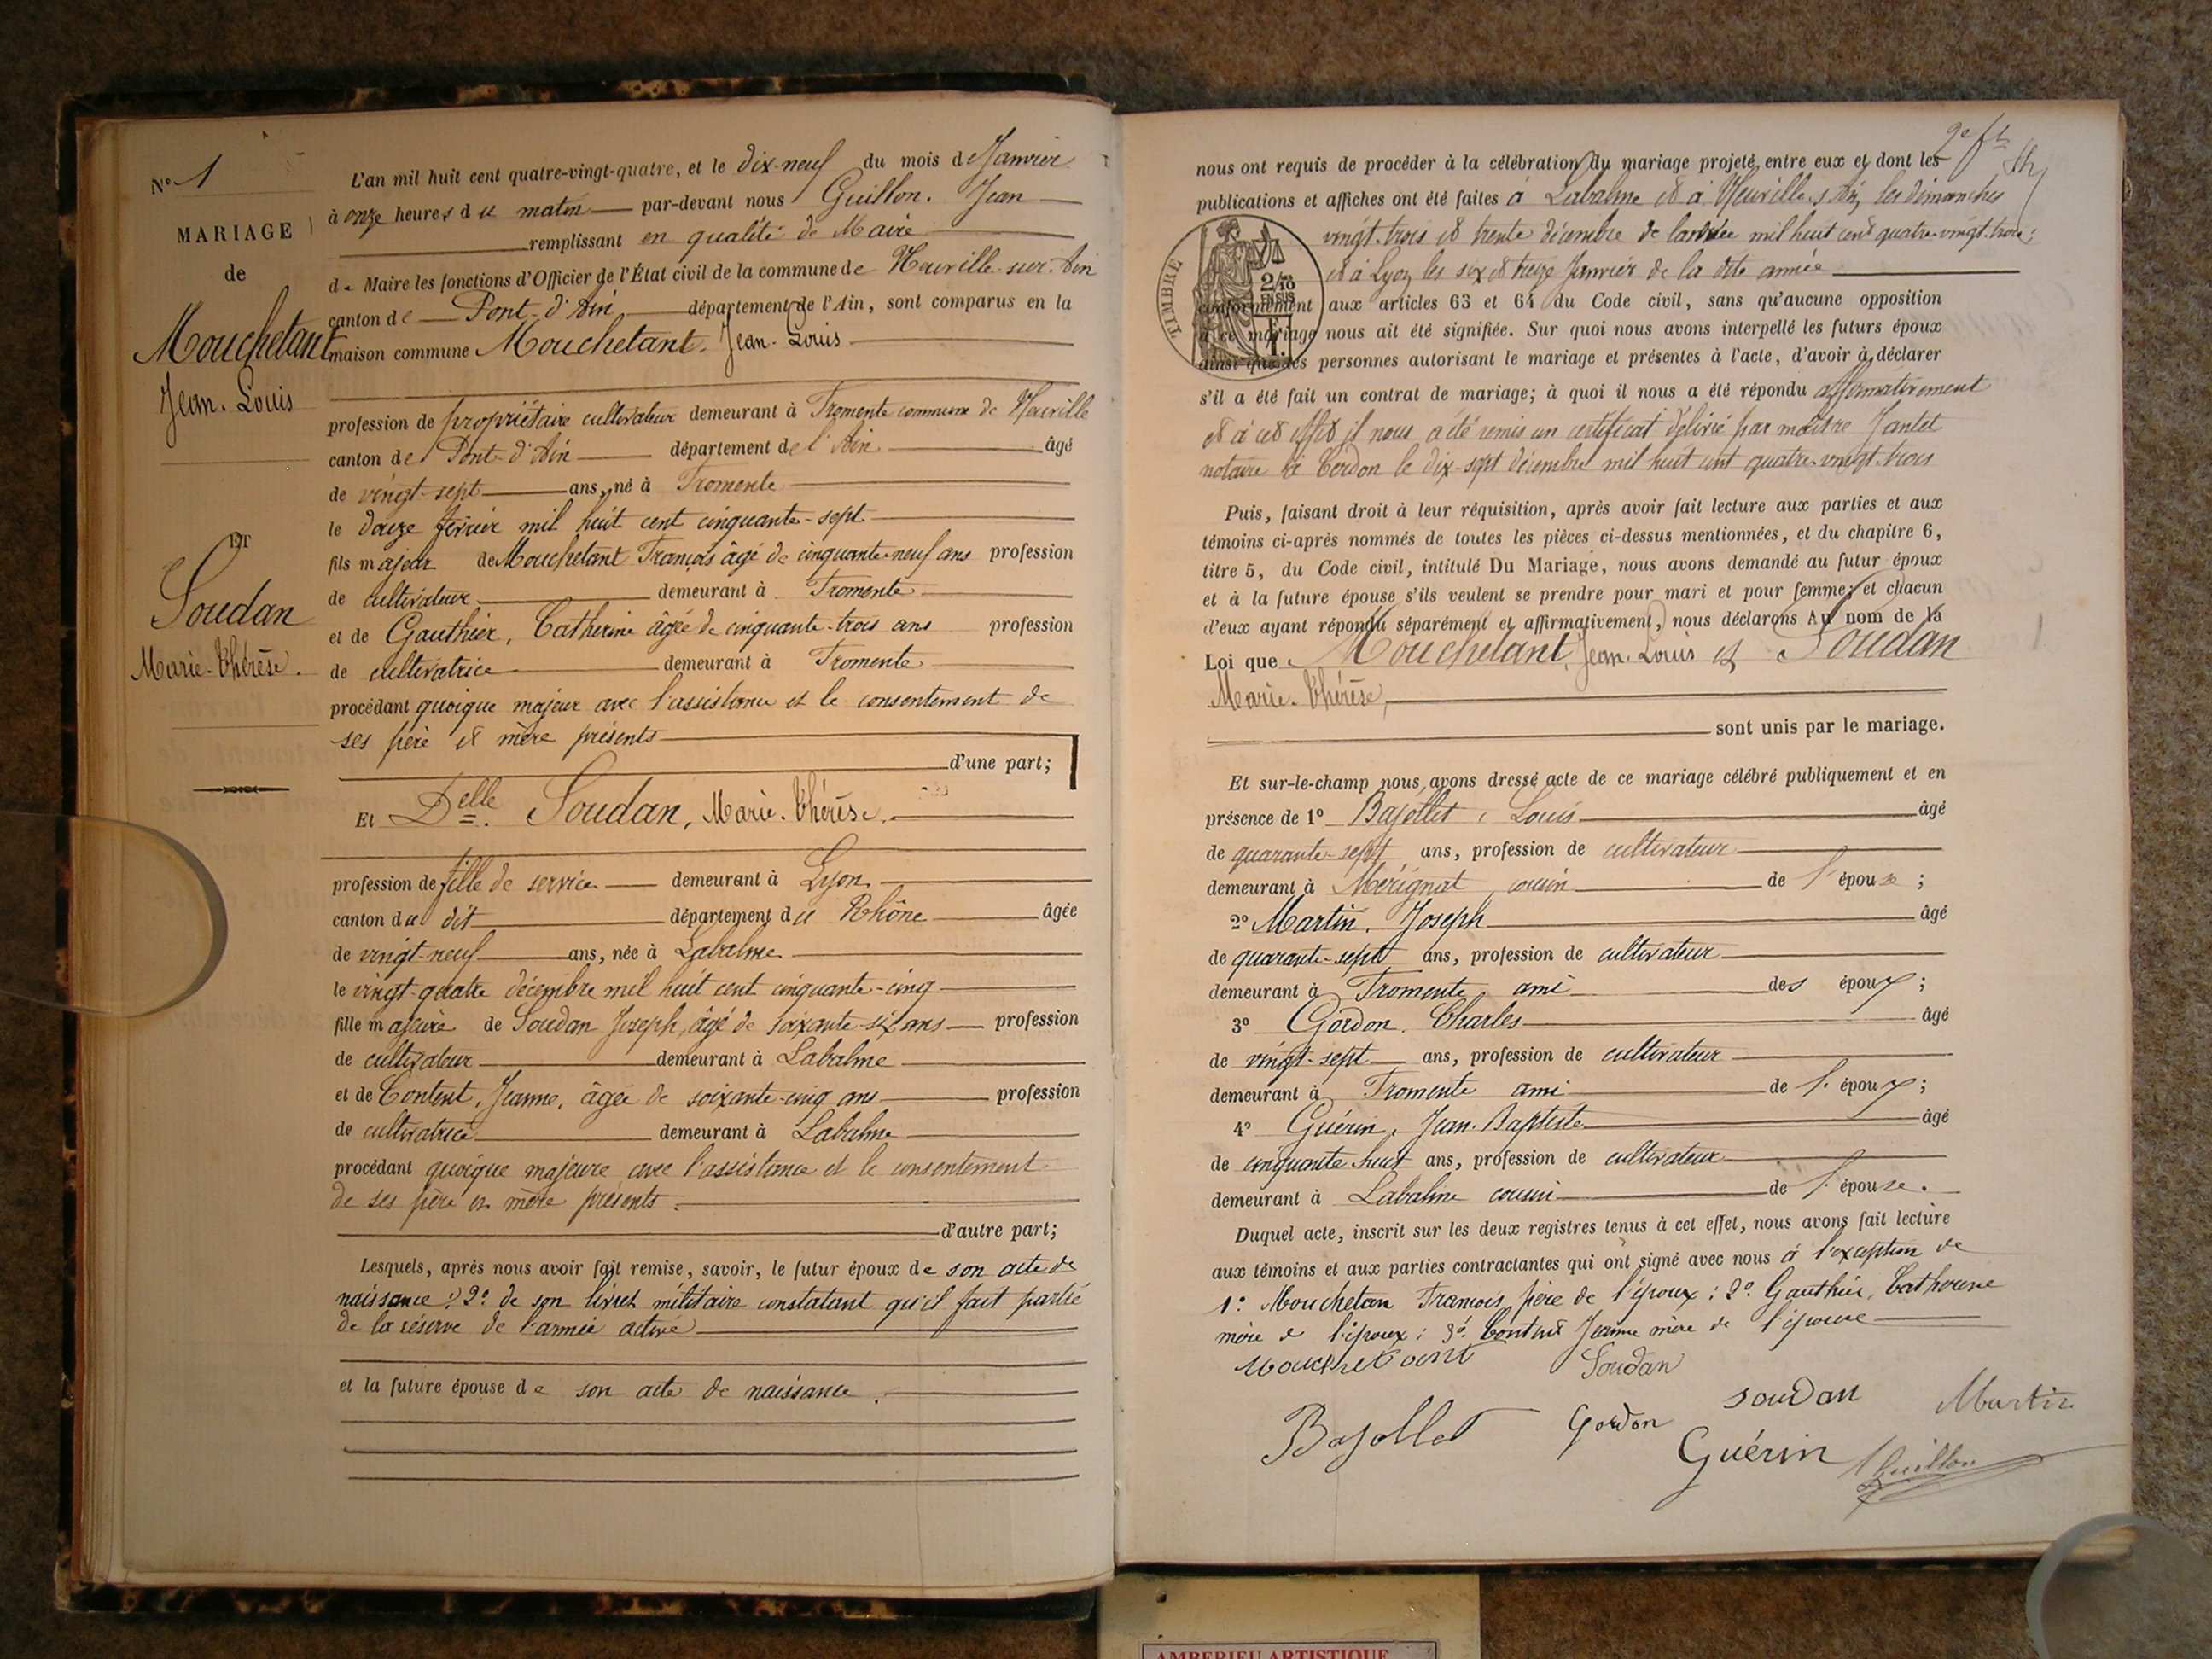 N° 1
MARIAGE
de
Mouchetant
Jean-Louis
ET
Soudan
Marie-Thérèse.
L'an mil huit cent quatre-vingt-quatre, et le dix-neuf du mois de Janvier
à onze heures du matin par-devant nous Guillon. Jean
remplissant en qualité de Maire
de Maire les fonctions d'Officier de l'État civil de la commune de Neuville-sur-Ain
canton de Pont-d'Ain département de l'Ain, sont comparus en la
maison commune Mouchetant. Jean-Louis
profession de propriétaire cultivateur demeurant à Fromente commune de Neuville
canton de Pont-d'Ain département de l'Ain âgé
de vingt-sept ans, né à Fromente
le douze février mil huit cent cinquante-sept
fils majeur de Mouchetant François âgé de cinquante-neuf ans profession
de cultivateur demeurant à Fromente
et de Gauthier, Catherine âgée de cinquante-trois ans profession
de cultivatrice demeurant à Fromente
procédant quoique majeur avec l'assistance et le consentement de
ses père et mère présents
d'une part;
Et Delle. Soudan, Marie-Thérèse.
profession de fille de service demeurant à Lyon.
canton du dit département du Rhône âgée
de vingt-neuf ans, née à Labalme
le vingt-quatre décembre mil huit cent cinquante-cinq
fille majeure de Soudan Joseph, âgé de soixante-six ans profession
de cultivateur demeurant à Labalme
et de Content, Jeanne, âgée de soixante-cinq ans profession
de cultivatrice demeurant à Labalme
procédant quoique majeure avec l'assistance et le consentement
de ses père et mère présents.
d'autre part;
Lesquels, après nous avoir fait remise, savoir, le futur époux de son acte de
naissance: 2° de son livret militaire constatant qu'il fait partie
de la réserve de l'armée active
et la future épouse de son acte de naissance.
2e ft
nous ont requis de procéder à la célébration du mariage projeté entre eux et dont les
publications et affiches ont été faites à Labalme et à Neuville s Ain, les dimanches
vingt-trois et trente décembre de l'année mil huit cent quatre-vingt-trois;
et à Lyon les six et treize Janvier de la dite année
conformément aux articles 63 et 64 du Code civil, sans qu'aucune opposition
à ce mariage nous ait été signifiée. Sur quoi nous avons interpellé les futurs époux
ainsi que les personnes autorisant le mariage et présentes à l'acte, d'avoir à déclarer
s'il a été fait un contrat de mariage; à quoi il nous a été répondu affirmativement
et à cet effet il nous a été remis un certificat délivré par maître Jantet
notaire à Cerdon le dix-sept décembre mil huit cent quatre-vingt-trois
TIMBRE
2/10
EN SUS
Puis, faisant droit à leur réquisition, après avoir fait lecture aux parties et aux
témoins ci-après nommés de toutes les pièces ci-dessus mentionnées, et du chapitre 6,
titre 5, du Code civil, intitulé Du Mariage, nous avons demandé au futur époux
et à la future épouse s'ils veulent se prendre pour mari et pour femme; et chacun
d'eux ayant répondu séparément et affirmativement, nous déclarons Au nom de la
Loi que Mouchetant, Jean-Louis et Soudan
Marie-Thérèse,
sont unis par le mariage.
Et sur-le-champ nous avons dressé acte de ce mariage célébré publiquement et en
présence de 1° Bajollet, Louis âgé
de quarante-sept ans, profession de cultivateur
demeurant à Mérignat, cousin de l'épouse;
2° Martin. Joseph âgé
de quarante-sept ans, profession de cultivateur
demeurant à Fromente ami des époux;
3° Gordon. Charles âgé
de vingt-sept ans, profession de cultivateur
demeurant à Fromente ami de l'époux;
4° Guérin, Jean-Baptiste âgé
de cinquante-huit ans, profession de cultivateur
demeurant à Labalme cousin de l'épouse.
Duquel acte, inscrit sur les deux registres tenus à cet effet, nous avons fait lecture
aux témoins et aux parties contractantes qui ont signé avec nous à l'exception de
1° Mouchetan François père de l'époux: 2° Gauthier, Catherine
mère de l'époux: 3° Content Jeanne mère de l'épouse
Mouchetant Soudan
Soudan Martin
Bajollet Gordon
Guérin Guillon
AMBERIEU ARTISTIQUE